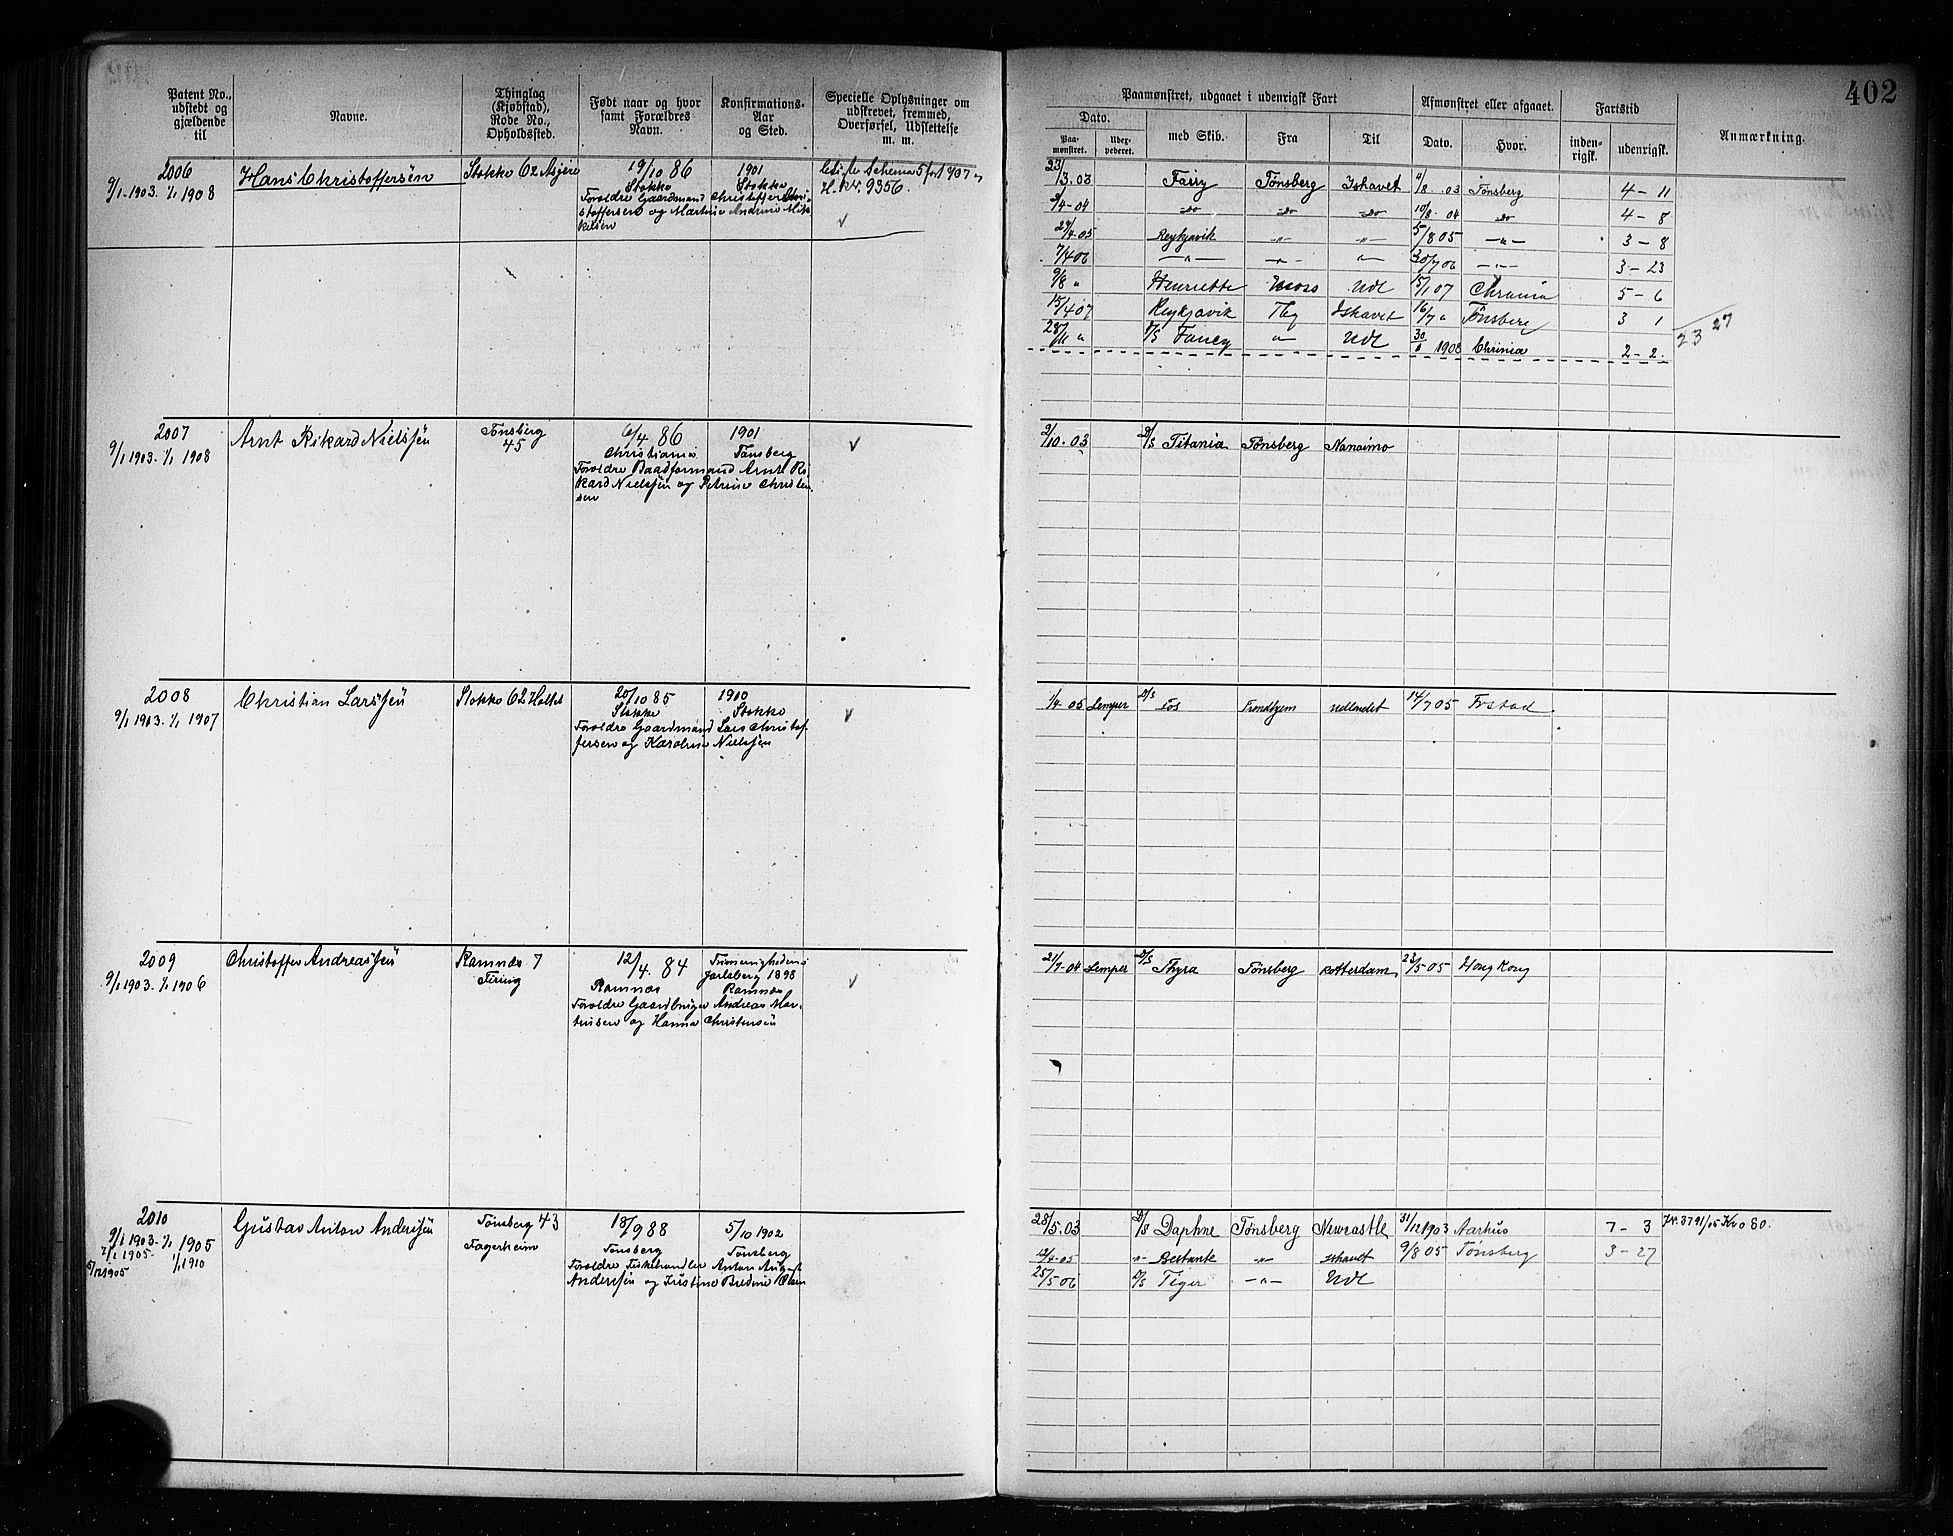 402
Patent No., udstedt og gjældende til
Navne.
Thinglag (Kjøbstad), Rode No., Opholdssted.
Født naar og hvor samt Forældres Navn.
Konfirmations-Aar og Sted.
Specielle Oplysninger om udskrevet, fremmed, Overførsel, Udslettelse m. m.
Paamønstret, udgaaet i udenrigsk Fart
Dato.
Paa-mønstret.
Uder-pederet.
med Skib.
Fra
Til
Afmønstret eller afgaaet.
Dato.
Hvor.
Fartstid
inden-rigsk.
udenrigsk.
Anmærkning.
2006
9/1 1903. 1/1 1908
Hans Christoffersen
Stokke 62
19/10 86
Stokke
Forældre Gaardmand Christoffer
stoffersen og Martine Andrine
1901
Stokke
Schema 5 for 1907
9356.
23/3.03 Fairy Tønsberg Ishavet 4/8.03 Tønsberg 4 – 11
4-04 do do do 10/8.04 do 4 – 8
27/4.05 Reykjavik „ „ 5/8 05 „ 3 – 8
7/4 06 „ „ „ 30/7 06 „ 3 – 23
9/8 „ Henriette Moss Udl 15/1 07 Chrania 5 – 6
15/4 07 Reykjavik Tbg Ishavet 16/7 „ Tønsberg 3 1
28/11 „ Fancy „ Udl 1908 Chrinia 2 – 2.
23 27
2007
9/1 1903. 1/1 1908
Arnt Rikard Nielsen
Tønsberg
45
6/4 86
Christiania
Forældre Baadformand Arnt Ri
kard Nielsen og Petrine Christen
sen
1901
Tønsberg
2/10.03 D/S Titania Tønsberg Nanaimo
2008
9/1 1903. 1/1 1907
Christian Larssen
Stokke 62 Holtet
20/10 85
Stokke
Forældre Gaardmand Lars Christof-
fersen og Karoline Nielsen
1910
Stokke
1/4 05 Semper D/S Eos Trondhjem Udlandet 14/7 05 Frstad
2009
9/1 1903. 1/1 1906
Christoffer Andreassen
Ramnæs 7
12/4. 84
Ramnæs
Forældre Gaardbruger Andreas Mar-
tinsen og Hanna Christensen
Frimenigheden i
Jarlsberg 1898
Ramnæs
21/7.04 Semper D/S Thyra Tønsberg Rotterdam 23/5 05 Hong Kong
2010
9/1 1903. 1/1 1905
7/1 1905. 1/1 1910
5/12 1905
Gustav Anton Andersen
Tønsberg 43
Fagerheim
18/9 88
Tønsberg
Forældre Fiskehandler Anton August
Andersen og Kristine Bredine Olsen
5/10 1902
Tønsberg
28/5.03 D/S Daphne Tønsberg Newcastle 31/12 1903 Aarhus 7 – 3
12/4.05 „ „ Ishavet 9/8 05 Tønsberg 3 – 27
25/5 06 Tiger „ Udl
Jr. 3791/05 Kr 0 80.